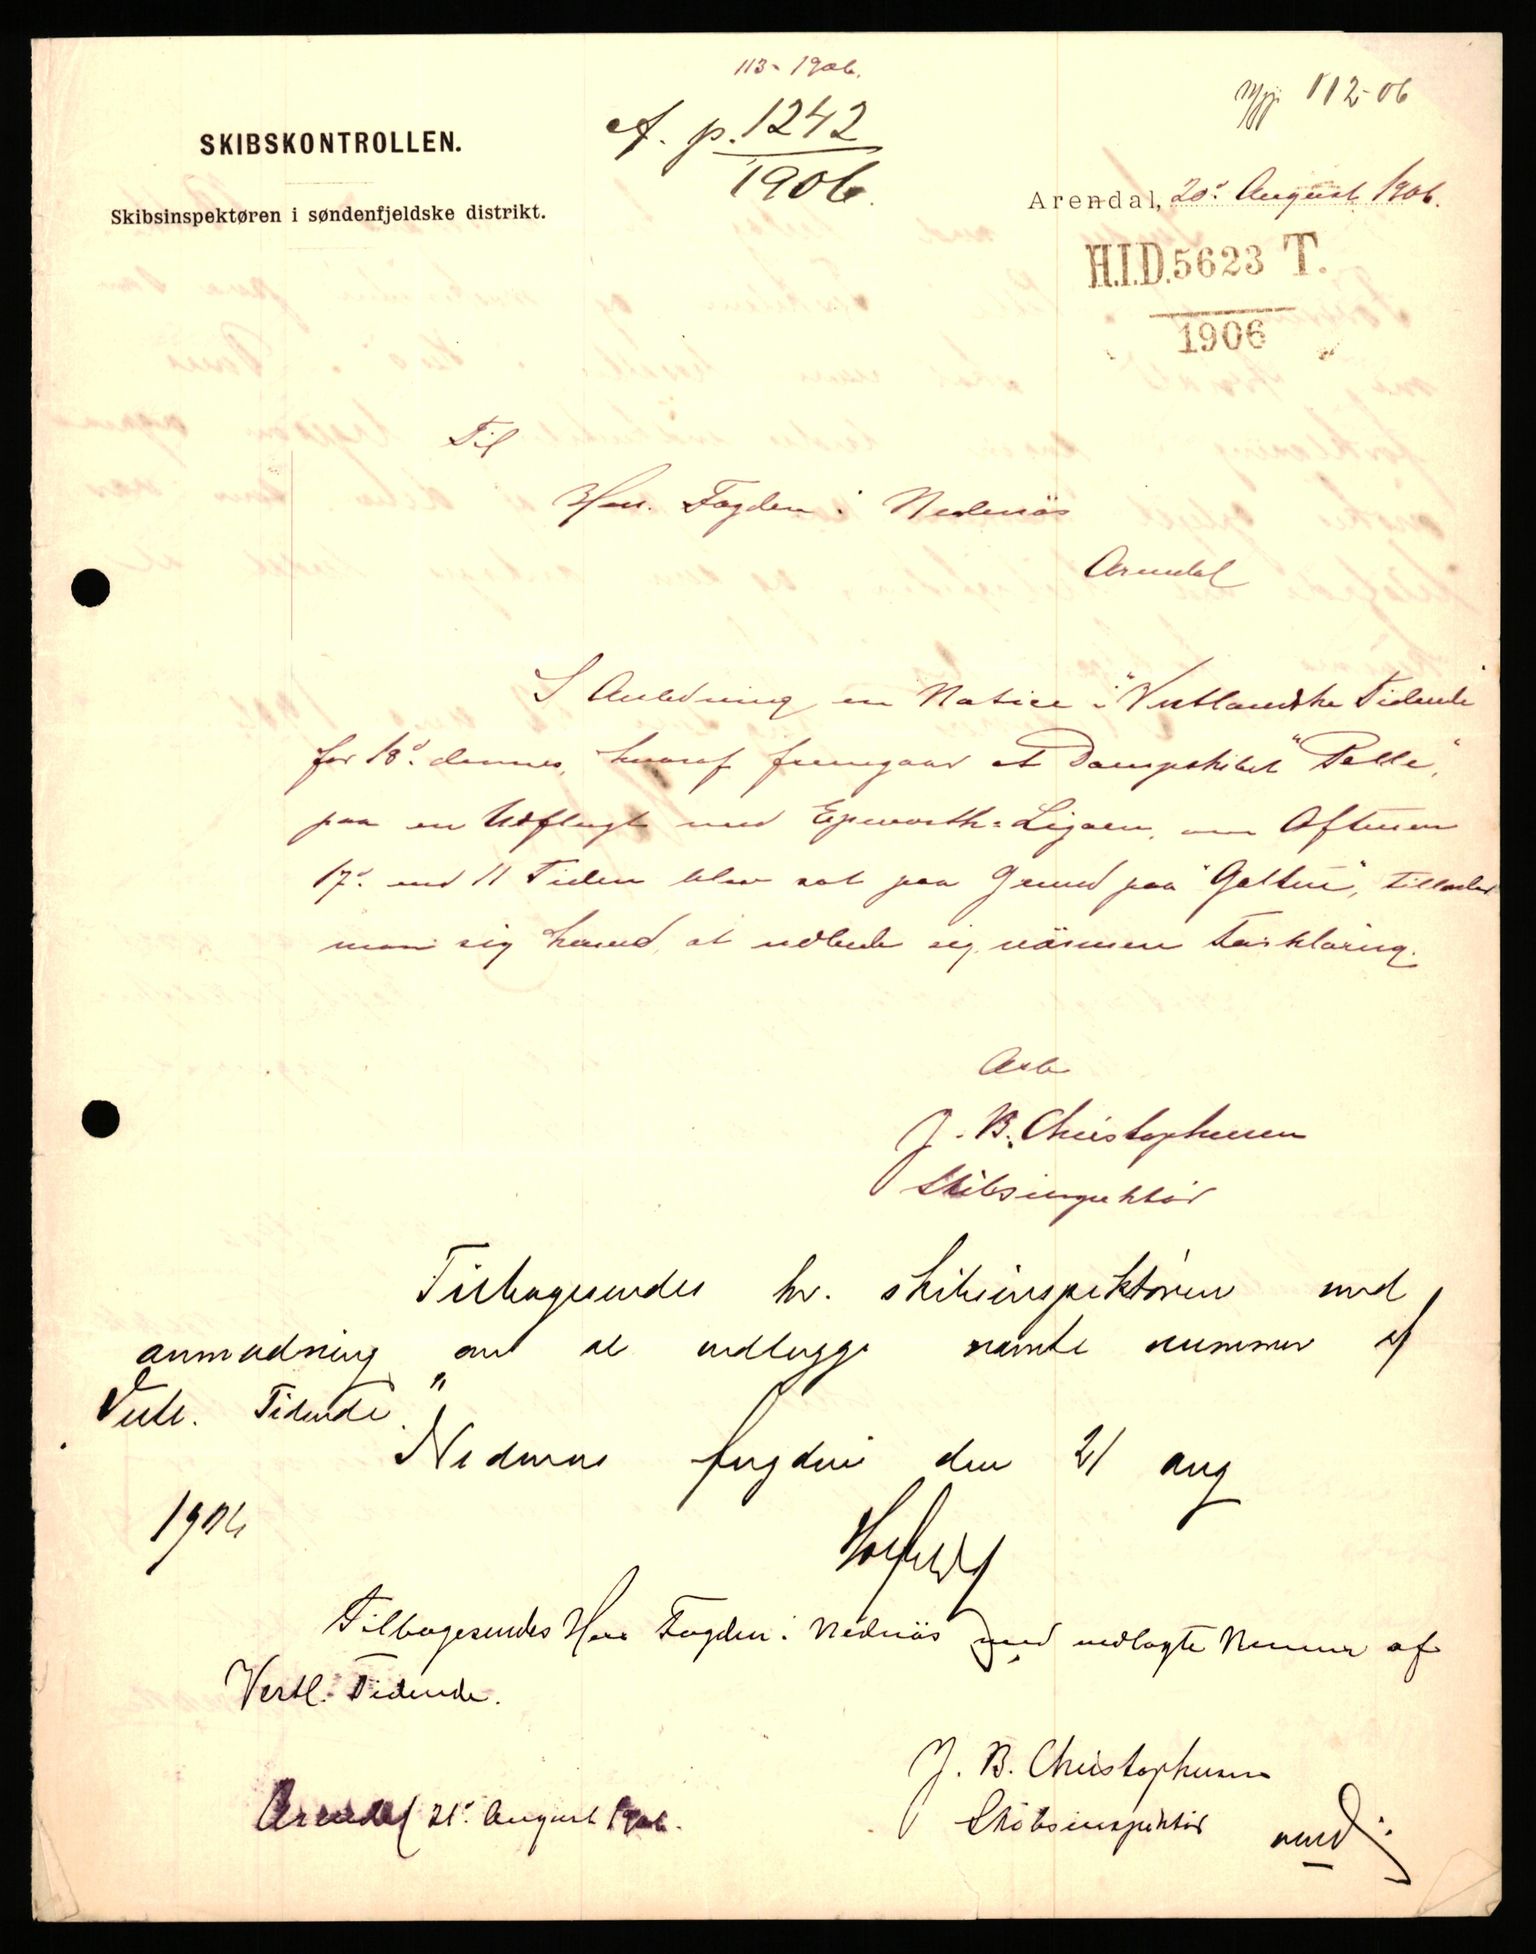 113-1906.
cf. p. 1242
1906.
112-06
SKIBSKONTROLLEN.
Skibsinspektøren i søndenfjeldske distrikt.
Arendal, 20d. August 1906.
H.I.D. 5623 T.
1906
Til
Herr Fogden i Nedenäs
Arendal
I Anledning en Notice i "Vestlandske Tidende"
for 18d. dennes, hvoraf fremgaar at Dampskibet "Pelle",
paa en Udflugt med Epworth-Ligaen, om Aftenen
17d. ved 11 Tiden blev sat paa Grund paa "Galten", tillader
man sig herved at udbede sig närmere Forklaring.
Arb
J. B. Christophersen
Skibsinspektör
Tilbagesendes hr. skibsinspektøren med
anmodning om at vedlegge nævnte nummer af
"Vestl. Tidende".
Nedenes fogderi den 21 aug
1906
Tilbagesendes Herr Fogden i Nednäs med vedlagte Nummer af
Vestl. Tidende.
J. B. Christophersen
Skibsinspektör
Arendal 21d. August 1906.
vend: